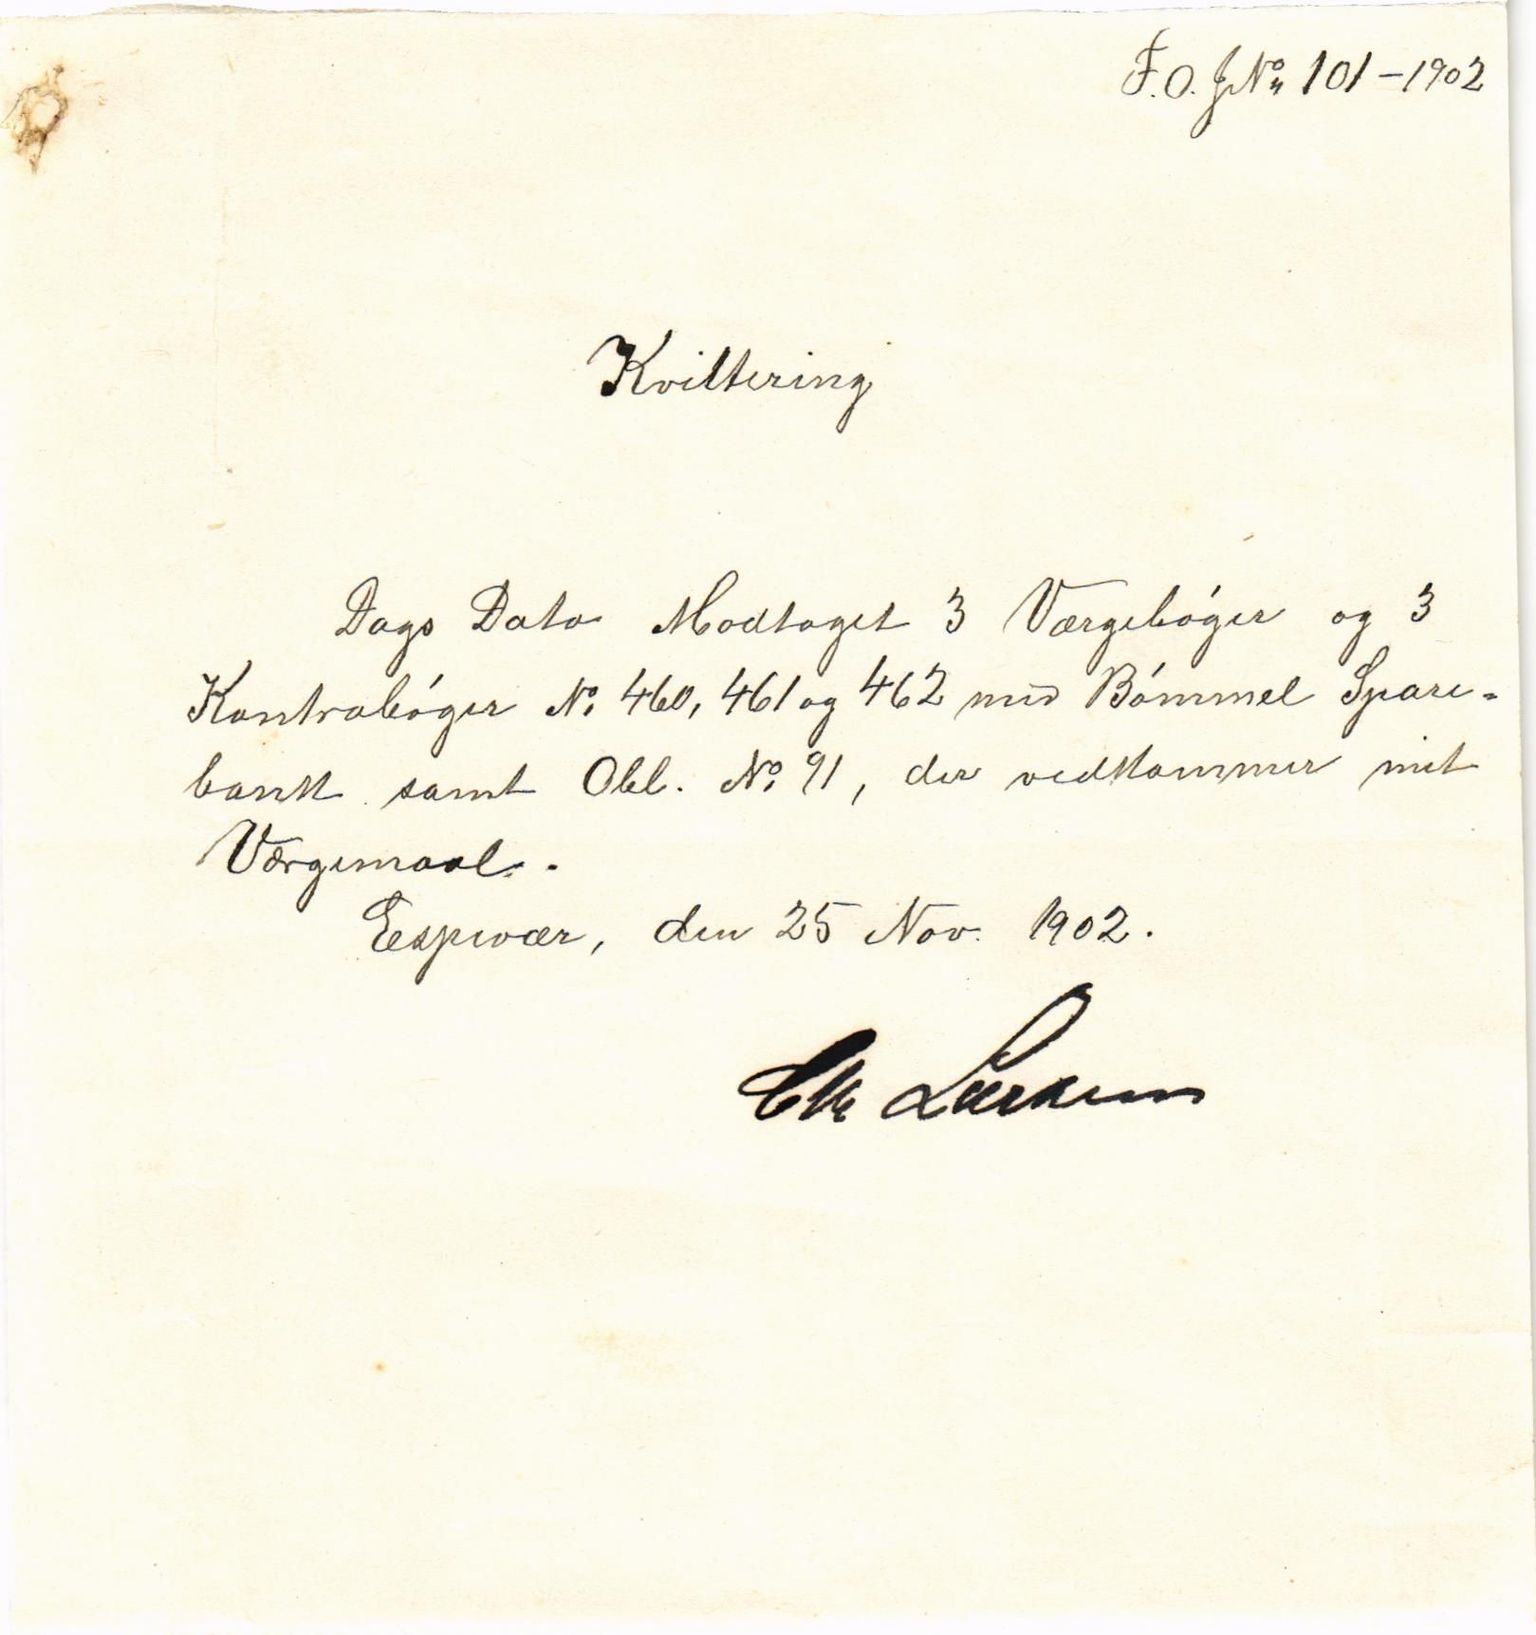 F.O. J No 101 – 1902
Kvittering
Dags Dato Modtaget 3 Værgebóger og 3
Kontrabóger No. 460, 461 og 462 med Bómmel Spare-
bank samt Obl. No. 91, der vedkommer mit
Værgemaal.
Espevær, den 25 Nov. 1902.
Larsen